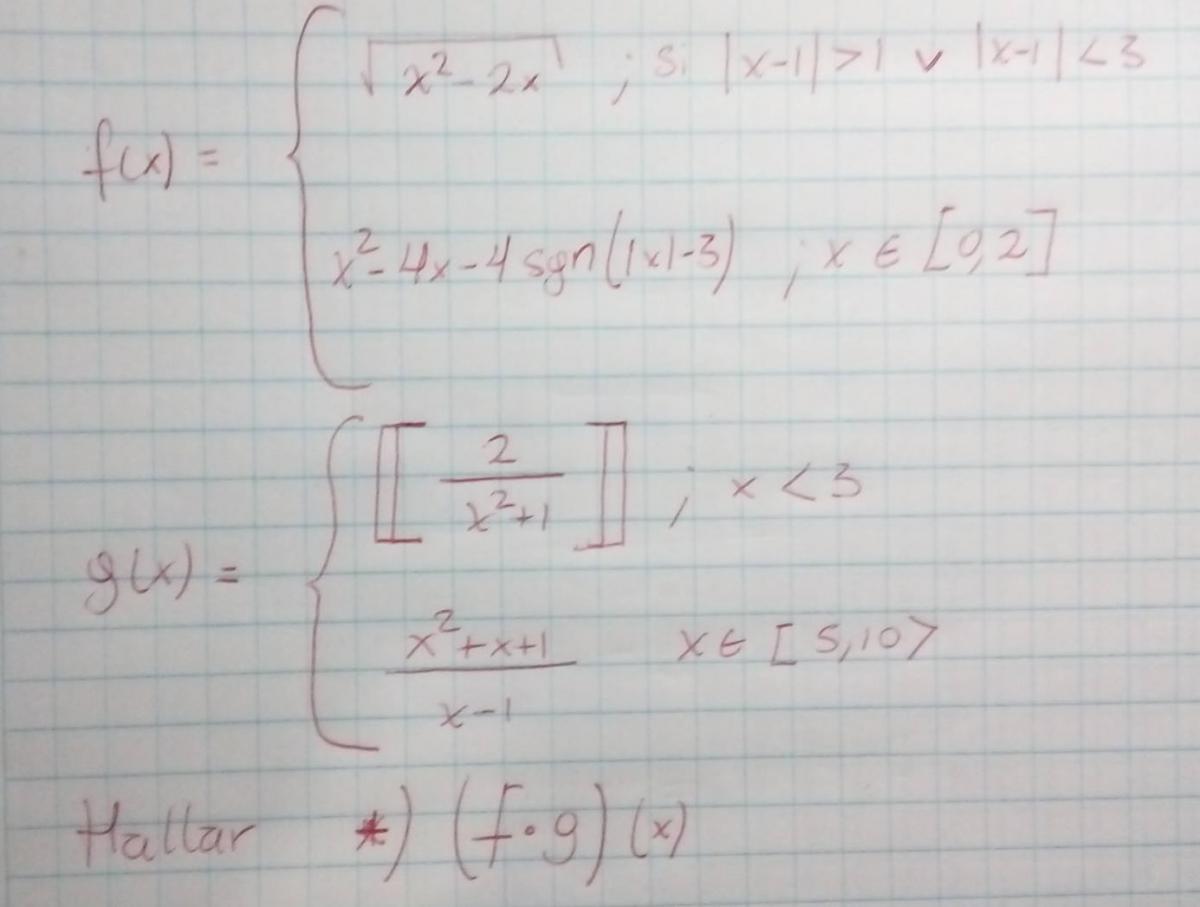 f(x) = { √(x² - 2x) ; si |x-1| > 1 ∨ |x-1| < 3
x² - 4x - 4 sgn(|x|-3) ; x ∈ [0,2]
g(x) = { [[ 2/(x²+1) ]] ; x < 3
(x²+x+1)/(x-1) x ∈ [5,10>
Hallar *) (f·g)(x)